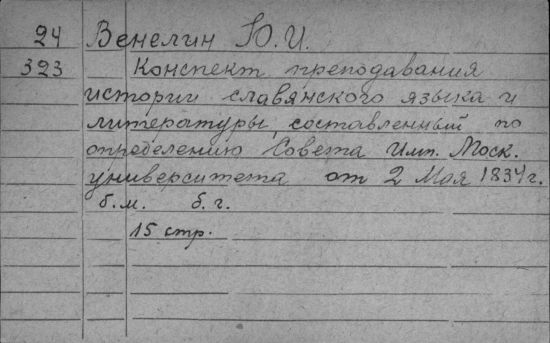 24 Венелин Ю.И.
323 Конспект преподавания
истории славянского языка и
литературы, составленный по
определению Совета Имп. Моск.
университета от 2 Мая 1834г.
б.м. б.г.
15 стр.